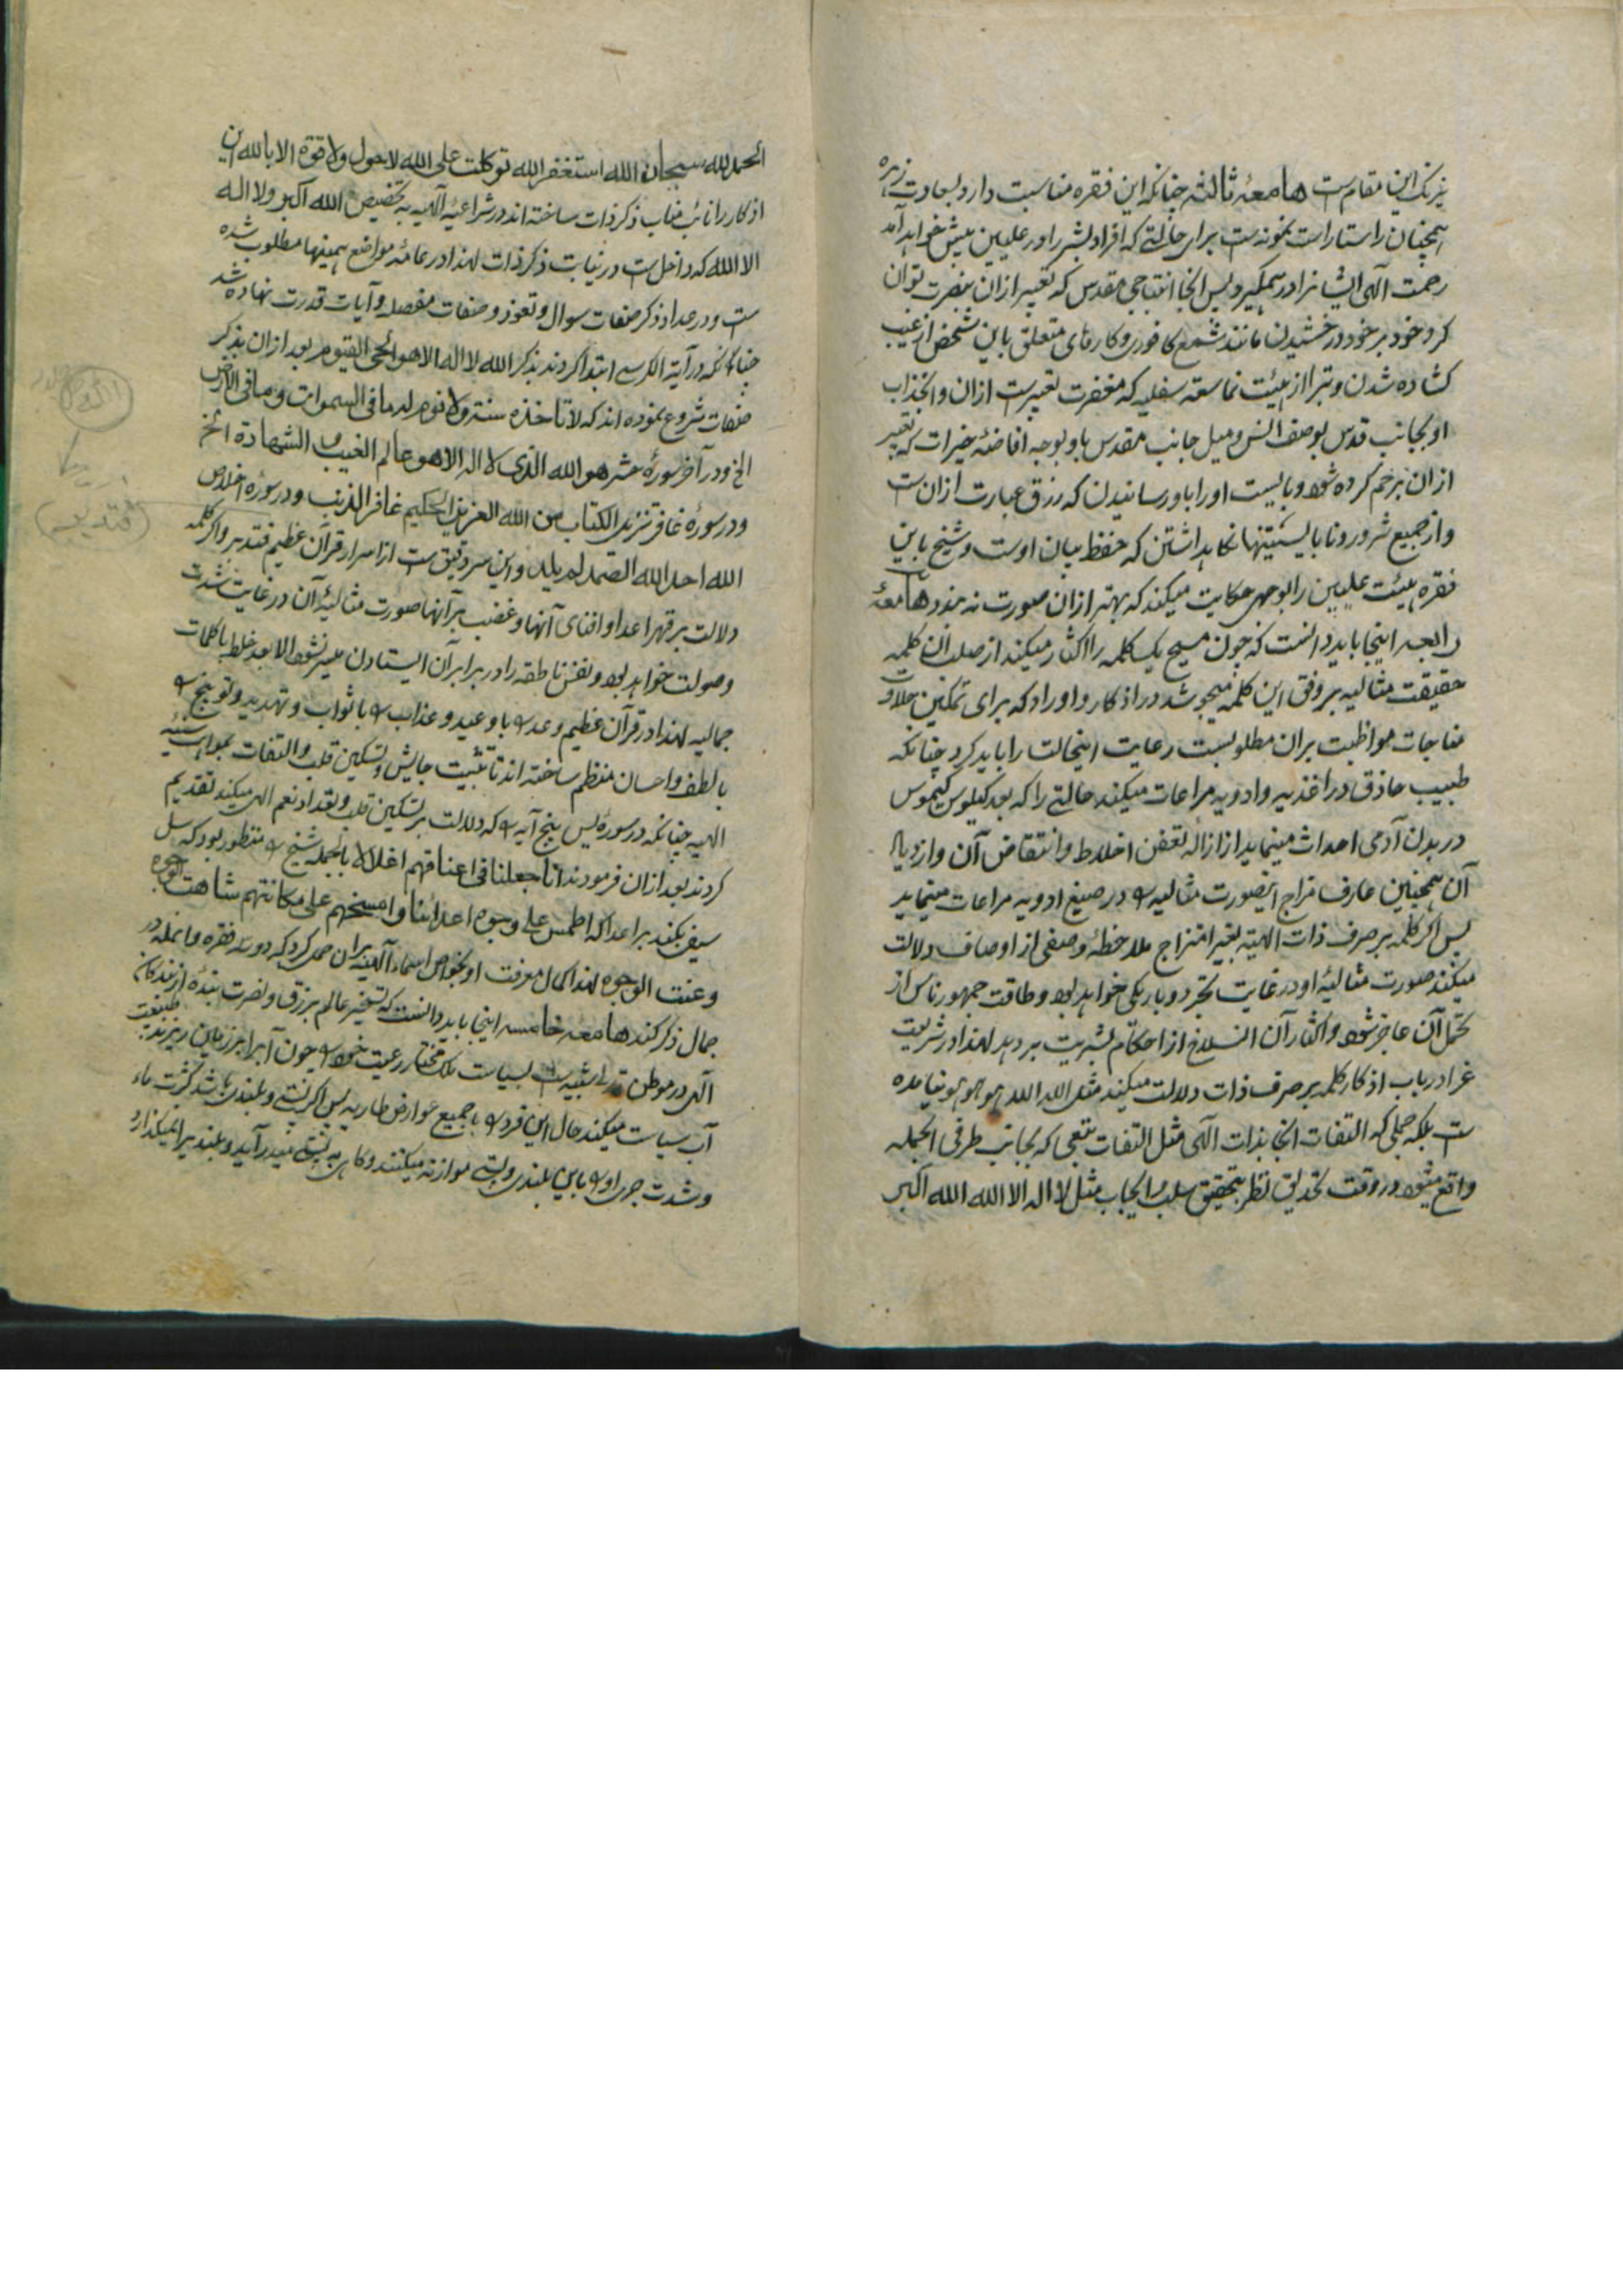 نیرنک این مقام ست هامعهٔ ثالثه چنانکه این فقره مناسبت دارد بسعادت زهره
همچنان راستا راست نمونه ست برای حالتی که افراد بشر را در علیین پیش خواهد آمد
رحمت الهی ایشانرا در میگیرد پس انجا انفتاحی مقدس که تعبیر ازان بنصرت توان
کرد خود بر خود درخشیدن مانند شمع کافوری و کارهای متعلق باین شخص از غیب
کشاده شدن و تبرا از هیئت خاسعه سفلیه که مغفرت تعبیرست ازان و انجذاب
او بجانب قدس بوصف انس و میل جانب مقدس باو بوجه افاضهٔ خیرات که تعبیر
ازان برحم کرده شود و بایست او را باو رسانیدن که رزق عبارت ازان ست
و از جمیع شرور و نابایستیتها نکاهداشتن که حفظ بیان اوست و شیخ باین
فقره هیئت علیین را بوجهی حکایت میکند که بهتر ازان صورت نه بندد هامعهٔ
رابعه اینجا باید دانست که چون مسیح یک کلمه را اکثار میکند از صلب ان کلمه
حقیقت مثالیه بر وفق این کلمه میجوشد در اذکار و اوراد که برای تمکین حلاوت
مناجات مواظبت بران مطلوبست رعایت اینحالت را باید کرد چنانکه
طبیب حاذق در اغذیه و ادویه مراعات میکند حالتی را که بعد کیلوس کیموس
در بدن آدمی احداث مینماید از ازاله تعفن اخلاط و انتقاض آن و ازدیاد
آن همچنین عارف مزاج اینصورت مثالیه را در صیغ ادویه مراعات مینماید
پس اگر کلمه بر صرف ذات الهیه بغیر امتزاج ملاحظهٔ وصفی از اوصاف دلالت
میکند صورت مثالیهٔ او در غایت تجرد و باریکی خواهد بود و طاقت جمهور ناس از
تحمل آن عاجز شود و اکثار آن انسلاخ از احکام بشریت بر دهد لهذا در شریعت
غرا در باب اذکار کلمه بر صرف ذات دلالت میکند مثل الله الله هو هو هو نیامده
ست بلکه جملی که التفات انجا بذات الهی مثل التفات تبعی که بجانب طرفی الجمله
واقع میشود در وقت تحدیق نظر بتحقیق سلب و ایجاب مثل لا اله الا الله الله اکبر
الحمد لله سبحان الله استغفر الله توکلت علی الله لا حول ولا قوة الا بالله این
اذکار را نائب مناب ذکر ذات ساخته اند در شراعیهٔ آلهیه به تخصیص الله اکبر ولا اله
الا الله که داخل ست در نیابت ذکر ذات لهذا در عامهٔ مواضع همینها مطلوب شده
ست و در عداد ذکر صفات سوال و تعوذ و صفات مفصله و آیات قدرت نهاده شد
چنانکه در آیة الکرسی ابتدا کردند بذکر الله لا اله الا هو الحی القیوم بعد ازان بذکر
صفات شروع نموده اند که لا تاخذه سنة ولا نوم له ما فی السموات وما فی الارض
الخ و در آخر سورهٔ حشر هو الله الذی لا اله الا هو عالم الغیب و الشهادة الخ
و در سورهٔ غافر تنزیل الکتاب من الله العزیز الحکیم غافر الذنب و در سورهٔ اخلاص
الله احد الله الصمد لم یلد و این سر دقیق ست از اسرار قرآن عظیم فتدبر و اگر کلمه
دلالت بر قهر اعدا و افنای آنها و غضب بر آنها صورت مثالیهٔ آن در غایت شدت
و صولت خواهد بود و نفس ناطقه را در برابر آن ایستادن میسر نشود الا بعد خلط با کلمات
جمالیه لهذا در قرآن عظیم وعد را با وعید و عذاب را با ثواب و تهدید و توبیخ را
با لطف و احسان منتظم ساخته اند تا تثبیت جایش و تسکین قلب و التفات بمواهب سنیهٔ
الهیه چنانکه در سورهٔ یس پنج آیه را که دلالت بر تسکین قلب و تعداد نعم الهی میکند تقدیم
کردند بعد ازان فرمودند انا جعلنا فی اعناقهم اغلالا بالجمله شیخ را منظور بود که سل
سیفی بکند بر اعدا که اطمس علی وجوه اعدائنا و امسخهم علی مکانتهم شاهت الوجوه
و عنت الوجوه لهذا کمال معرفت او بخواص اسماء آلهیه بران حمل کرد که دو سه فقره و انمله در
جمال ذکر کند هامعه خامسه اینجا باید دانست که تسخیر عالم برزق و نصرت بندهٔ از بندکان
آلهی در موطن تدلی شبیه ست بسیاست ملک مختار رعیت خود را چون آبرا بر زمین ریزند طبیعت
آب سیاست میکند حال این فرد را با جمیع عوارض طاریه پس اکر پستی و بلندی باشد کثرت ماء
و شدت جری او را باین بلندی و پستی موازنه میکنند و کاهی به پستی میدرآید و بلند را میکذارد
فتدبر